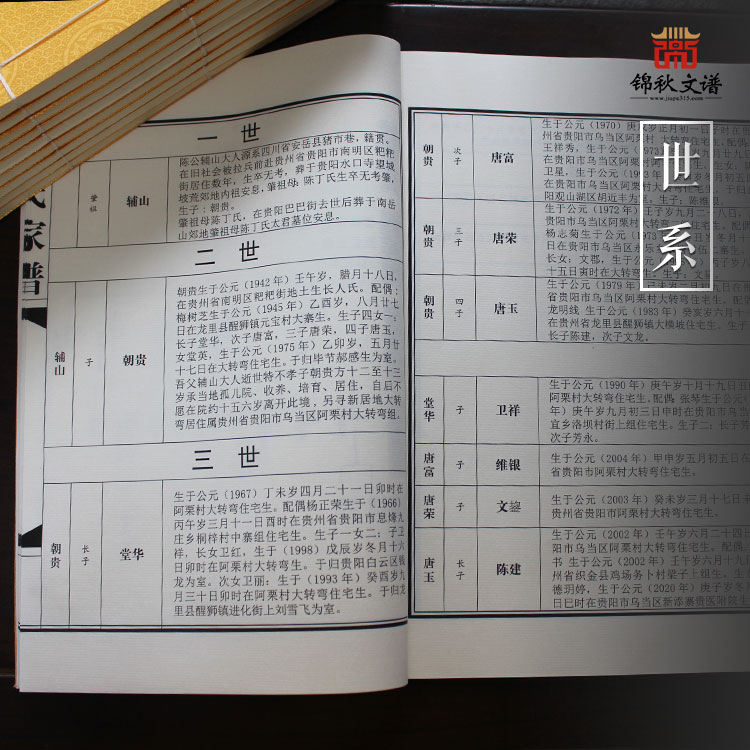 锦秋文谱
www.jiapu315.com
世系
家谱
一世
肇祖
辅山
陈公辅山大人源系四川省安岳县猪市巷,籍贯。
在旧社会被拉兵前赴贵州省贵阳市南明区粑粑
街居住数年,生卒无考,葬于贵阳水口寺望城
坡荒郊地内祖安息,肇祖母:陈丁氏生卒无考肇,
生子:朝贵。
肇祖母陈丁氏,在贵阳巴巴街去世后葬于南岳
山郊地肇祖母陈丁氏太君墓位安息。
二世
辅山
子
朝贵
朝贵生于公元(1942年)壬午岁,腊月十八日,
在贵州省南明区粑粑街地土生长人氏。配偶:
梅树芝生于公元(1945年)乙酉岁,八月廿七
日在龙里县醒狮镇元宝村大寨生。生子四女一:
长子堂华,次子唐富,三子唐荣,四子唐玉,
女堂英,生于公元(1975年)乙卯岁,五月廿
十七日在大转弯住宅生。于归毕节郝感生为室。
吾父辅山大人逝世特不孝子朝贵方十二至十三
岁承当地孤儿院、收养、培育、居住,自后不
愿在院约十五六岁离开此境,另寻新居地大转
弯居住属贵州省贵阳市乌当区阿栗村大转弯组。
三世
朝贵
长子
堂华
生于公元(1967)丁未岁四月二十一日卯时在
阿栗村大转弯住宅生。配偶杨正荣生于(1966)
丙午岁三月十一日酉时在贵州省贵阳市息烽九
庄乡桐梓村中寨组住宅生。子一女二:子卫
祥,长女卫红,生于(1998)戊辰岁冬月十六
日卯时在阿栗村大转弯生。于归贵阳白云区钱
龙为室。次女卫丽:生于(1993年)癸酉岁九
月三十日卯时在阿栗村大转弯住宅生。于归龙
里县醒狮镇进化街上刘雪飞为室。
朝贵
次子
唐富
生于公元(1970)庚戌岁正月初一日子时在
王祥秀,生于公元(1973
在贵阳市乌当区阿栗村
卫星,生于公元(1993
阳市乌当区阿栗村大转
阳观山湖区胡近丰为
朝贵
三子
唐荣
生于公元(1972年)壬子岁九月二八日
贵阳市乌当区阿栗村大转弯住宅生。
杨志菊生于公元(1973
日在贵阳市乌当区永乐
长女:文郡,生于公元
十五日寅时在大转弯生。
朝贵
四子
唐玉
生于公元(1979年)己未岁
省贵阳市乌当区阿栗村大转弯住宅生。
龙明线 生于公元(1983)癸亥岁六月十
在贵州省龙里县醒狮镇大模坡住宅生。
长子陈建,次子文龙。
堂华
子
卫祥
生于公元(1990年)庚午岁十月十九日
阿栗村大转弯住宅生。配偶 张琴生于公元
年)庚午岁九月初三日申时在贵阳市乌当
宜乡洛坝村街上组住宅生。生子二:长子
次子芳永。
唐富
子
维银
生于公元(2004年)甲申岁五月初五日在
省贵阳市阿栗村大转弯住宅生。
唐荣
子
文鋆
生于公元(2003年)癸未岁三月十七日
州省贵阳市阿栗村大转弯住宅生。
唐玉
长子
陈建
生于公元(2002年)壬午岁六月二十四日
阳市乌当区阿栗村大转弯住宅生。配偶
书 生于公元(2002年)壬午岁六月十九日
州省织金县鸡场务卜村梁子上组生。生
德玥婷,生于公元(2020年)庚子岁冬
日巳时在贵阳市乌当区新添寨贵医附院生